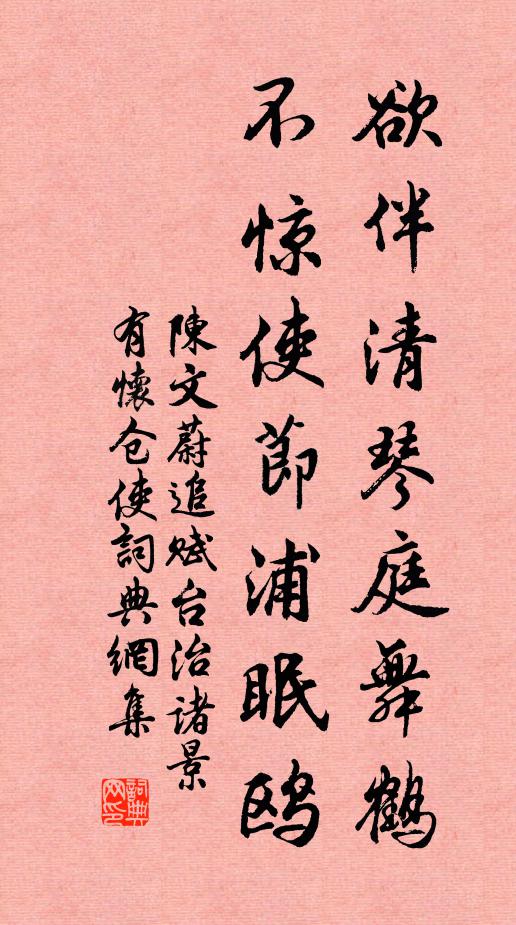 欲伴清琴庭舞鶴
不惊使節浦眠鸥
陳文蔚追赋台治諸景
有懷仓使詞典網集
詞典
网印